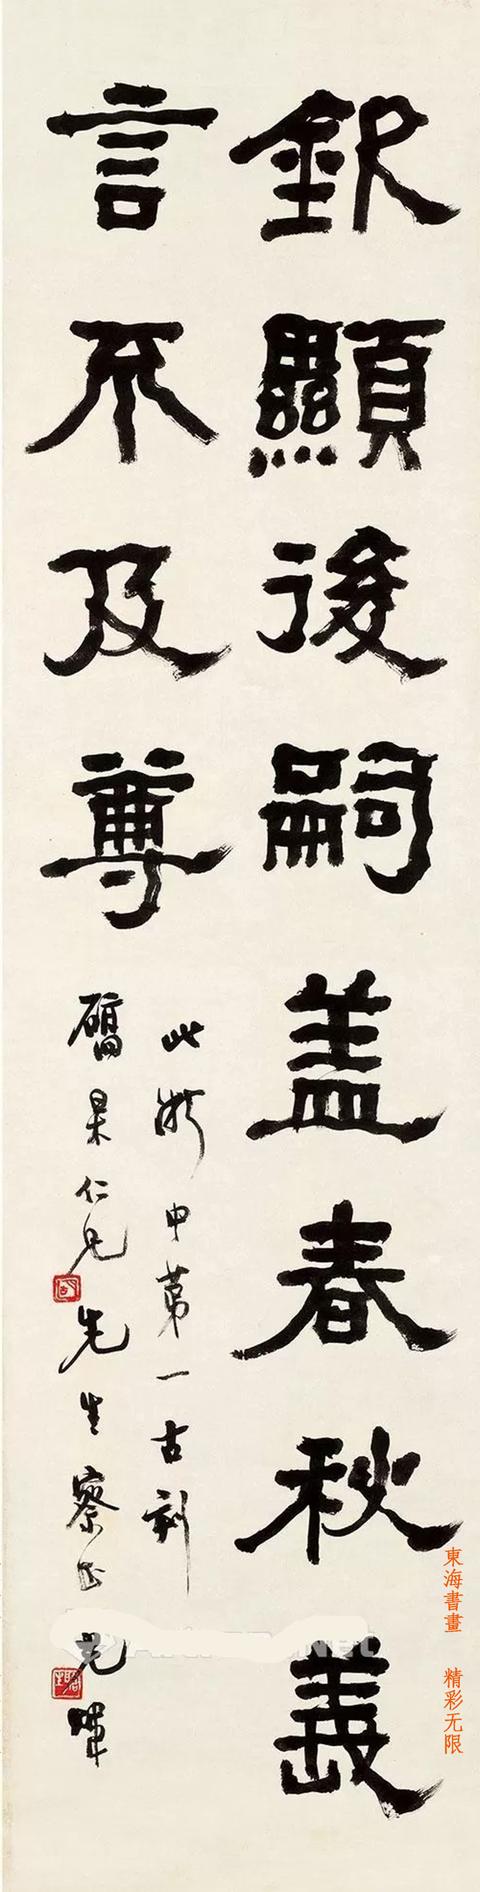 欽顯後嗣盖春秋義
言不及尊
此浙中第一古刻
仁兄先生察正
東海書畫 精彩无限